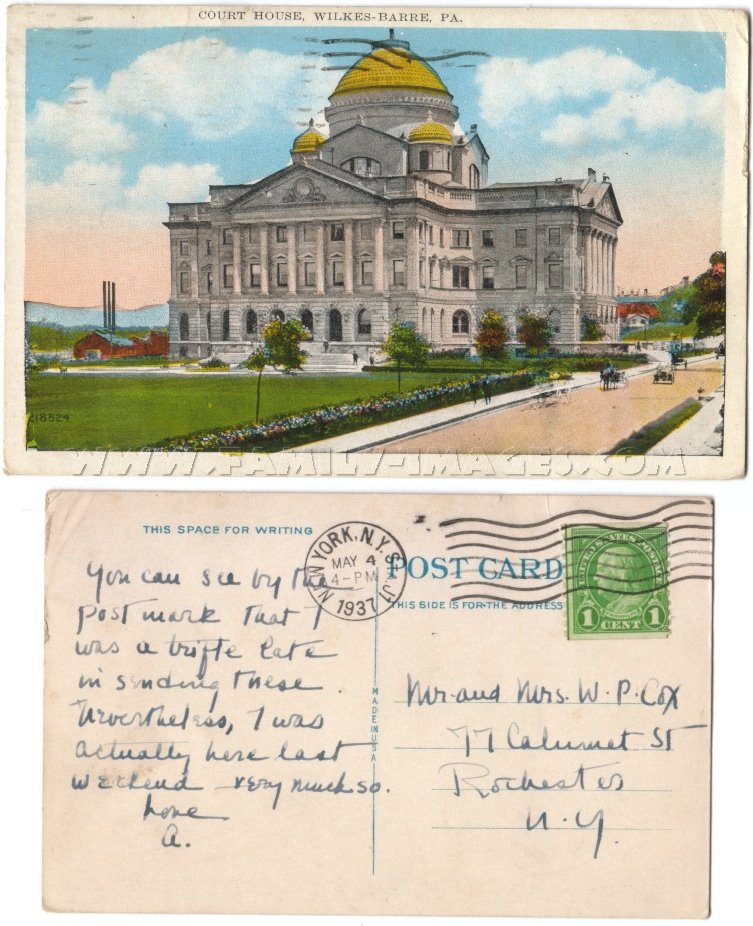 COURT HOUSE, WILKES-BARRE, PA.
218524
WWW.FAMILY-IMAGES.COM
THIS SPACE FOR WRITING
NEW YORK, N.Y.
MAY 4
4-PM
1937
POST CARD
THIS SIDE IS FOR THE ADDRESS
UNITED STATES POSTAGE
FRANKLIN
1 CENT 1
MADE IN USA
You can see by the
post mark that I
was a trifle late
in sending these.
Nevertheless, I was
actually here last
weekend very much so.
Love
A.
Mr. and Mrs. W. P. Cox
77 Calumet St
Rochester
N.Y.